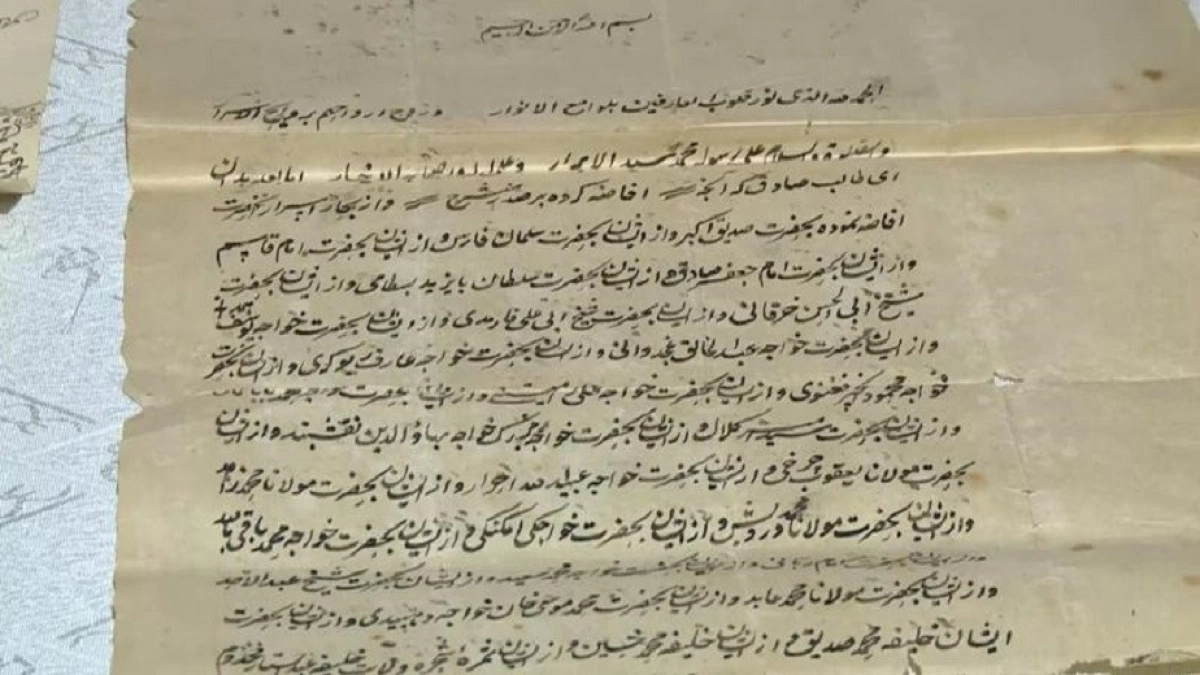 بسم الله الرحمن الرحیم
الحمد لله الذی نور قلوب العارفین بلوامع الانوار
والصلوة والسلام علی رسوله محمد سید الابرار وعلی اله واصحابه الاخیار اما بعد بدان
ای طالب صادق که افاضه کرده بر صدر واز بحار اسرار
افاضه نموده بحضرت صدیق اکبر واز ایشان بحضرت سلمان فارسی واز ایشان بحضرت امام قاسم
واز ایشان بحضرت امام جعفر صادق واز ایشان بحضرت سلطان بایزید بسطامی واز ایشان بحضرت
شیخ ابی الحسن خرقانی واز ایشان بحضرت شیخ ابی علی فارمدی واز ایشان بحضرت خواجه یوسف
واز ایشان بحضرت خواجه عبد الخالق غجدوانی واز ایشان بحضرت خواجه عارف ریوکری واز ایشان بحضرت
خواجه محمود انجیر فغنوی واز ایشان بحضرت خواجه علی رامیتنی واز ایشان بحضرت خواجه محمد بابا
واز ایشان بحضرت سید میر کلال واز ایشان بحضرت خواجه بزرک خواجه بهاؤ الدین نقشبند واز ایشان
بحضرت مولانا یعقوب چرخی واز ایشان بحضرت خواجه عبید الله احرار واز ایشان بحضرت مولانا محمد زاهد
واز ایشان بحضرت مولانا محمد درویش واز ایشان بحضرت خواجکی امکنکی واز ایشان بحضرت خواجه محمد باقی بالله
واز ایشان بحضرت امام ربانی واز ایشان بحضرت خواجه محمد سعید واز ایشان بحضرت شیخ عبد الاحد
واز ایشان بحضرت مولانا محمد عابد واز ایشان بحضرت محمد موسی خان خواجه دهبیدی واز ایشان بحضرت
ایشان خلیفه محمد صدیق واز ایشان خلیفه محمد حسین واز ایشان ثمره شجره ولایت خلیفه عبد الستار مخدوم